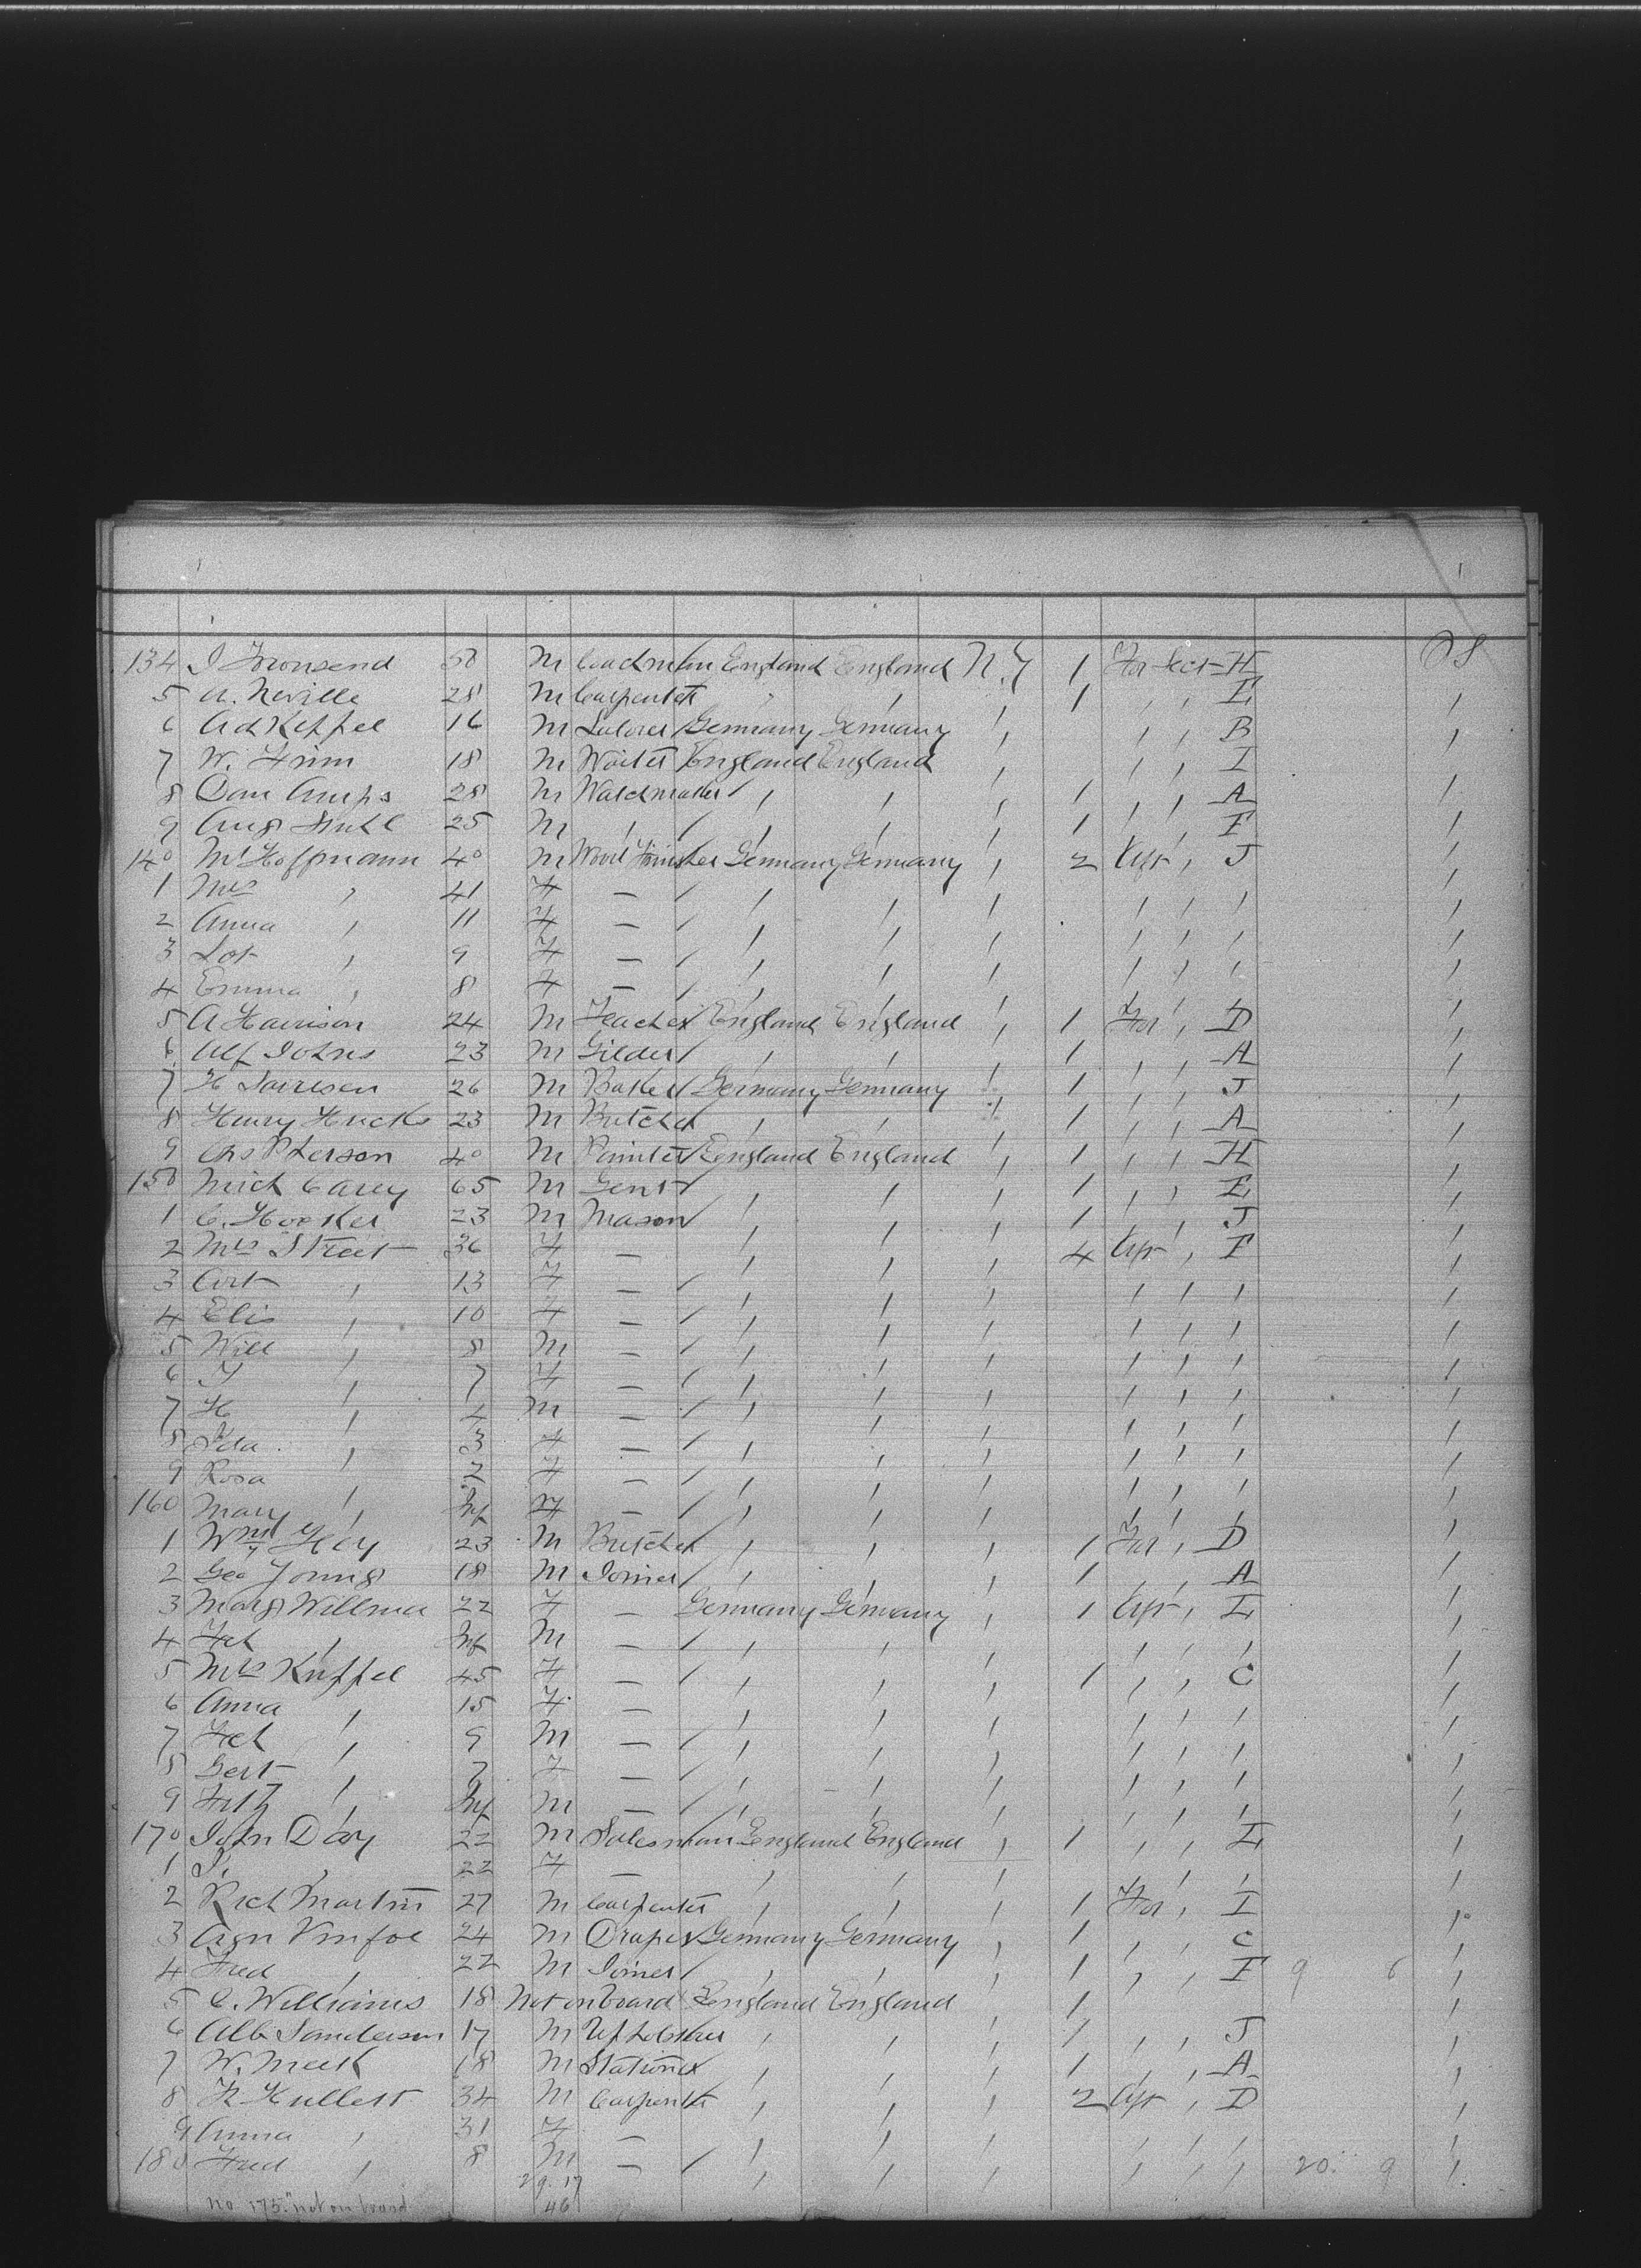 134 J Townsend 50 M Coachman England England N.Y 1 For Sect H
5 A. Neville 28 M Carpenter , , , 1 , , E
6 Ad Keppel 16 M Laborer Germany Germany , , , B
7 W. 18 M Waiter England England , , , I
8 Dan Amps 28 M Watchmaker , , , 1 , , A
9 Aug 25 M , , , , 1 , , F
140 Mr Hoffmann 40 M Wood Finisher Germany Germany , 2 , J
1 Mrs , 41 F — , , , , , ,
2 Anna , 11 F — , , , , , ,
3 Lot , 9 F — , , , , , ,
4 Emma , 8 F — , , , , , ,
5 A Harrison 24 M Teacher England England , 1 For , D
6 Alf Johns 23 M Gilder , , , 1 , , A
7 H 26 M Baker Germany Germany , 1 , , J
8 Henry 23 M Butcher , , , 1 , , A
9 40 M Painter England England , 1 , , H
150 Mich Carey 65 M Gent , , , 1 , , E
1 C. Hooker 23 M Mason , , , 1 , , J
2 Mrs Street 36 F — , , , 4 , F
3 , 13 F — , , , , , ,
4 Elis , 10 F — , , , , , ,
5 Will , 8 M — , , , , , ,
6 , 7 F — , , , , , ,
7 H , 4 M — , , , , , ,
8 Ida , 3 F — , , , , , ,
9 Rosa , 2 F — , , , , , ,
160 Mary , Inf F — , , , , , ,
1 Wm 23 M Butcher , , , 1 For , D
2 Geo Young 18 M Joiner , , , 1 , , A
3 Marg 22 F — Germany Germany , 1 , E
4 , Inf M — , , , , , ,
5 Mrs 45 F — , , , 1 , , C
6 Anna , 15 F — , , , , , ,
7 , 9 M — , , , , , ,
8 Gert , 7 F — , , , , , ,
9 Fritz , Inf M — , , , , , ,
170 John Day 22 M Salesman England England , 1 , , E
1 , 22 F — , , , , , ,
2 Rich Martin 27 M Carpenter , , , 1 For , I
3 24 M Draper Germany Germany , 1 , , C
4 Fred , 22 M Joiner , , , 1 , , F 9 6
5 C. Williams 18 Not on board England England , 1
6 Alb Sanderson 17 M Upholsterer , , , 1 , , J
7 W. Meek 18 M Stationer , , , 1 , , A
8 34 M Carpenter , , , 2 , D
9 Anna , 31 F — , , , , , ,
180 Fred , 8 M — , , , , , , 20. 9
29. 17
46
No 175. "not on board